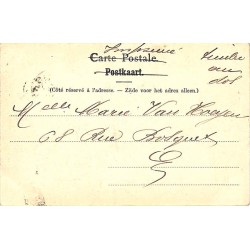 Imprimé
Carte Postale.
Postkaart.
timbre
au
dos
(Côté réservé à l'adresse. — Zijde voor het adres alleen.)
Melle Marie Van Hoeyen
68 Rue Bosquet